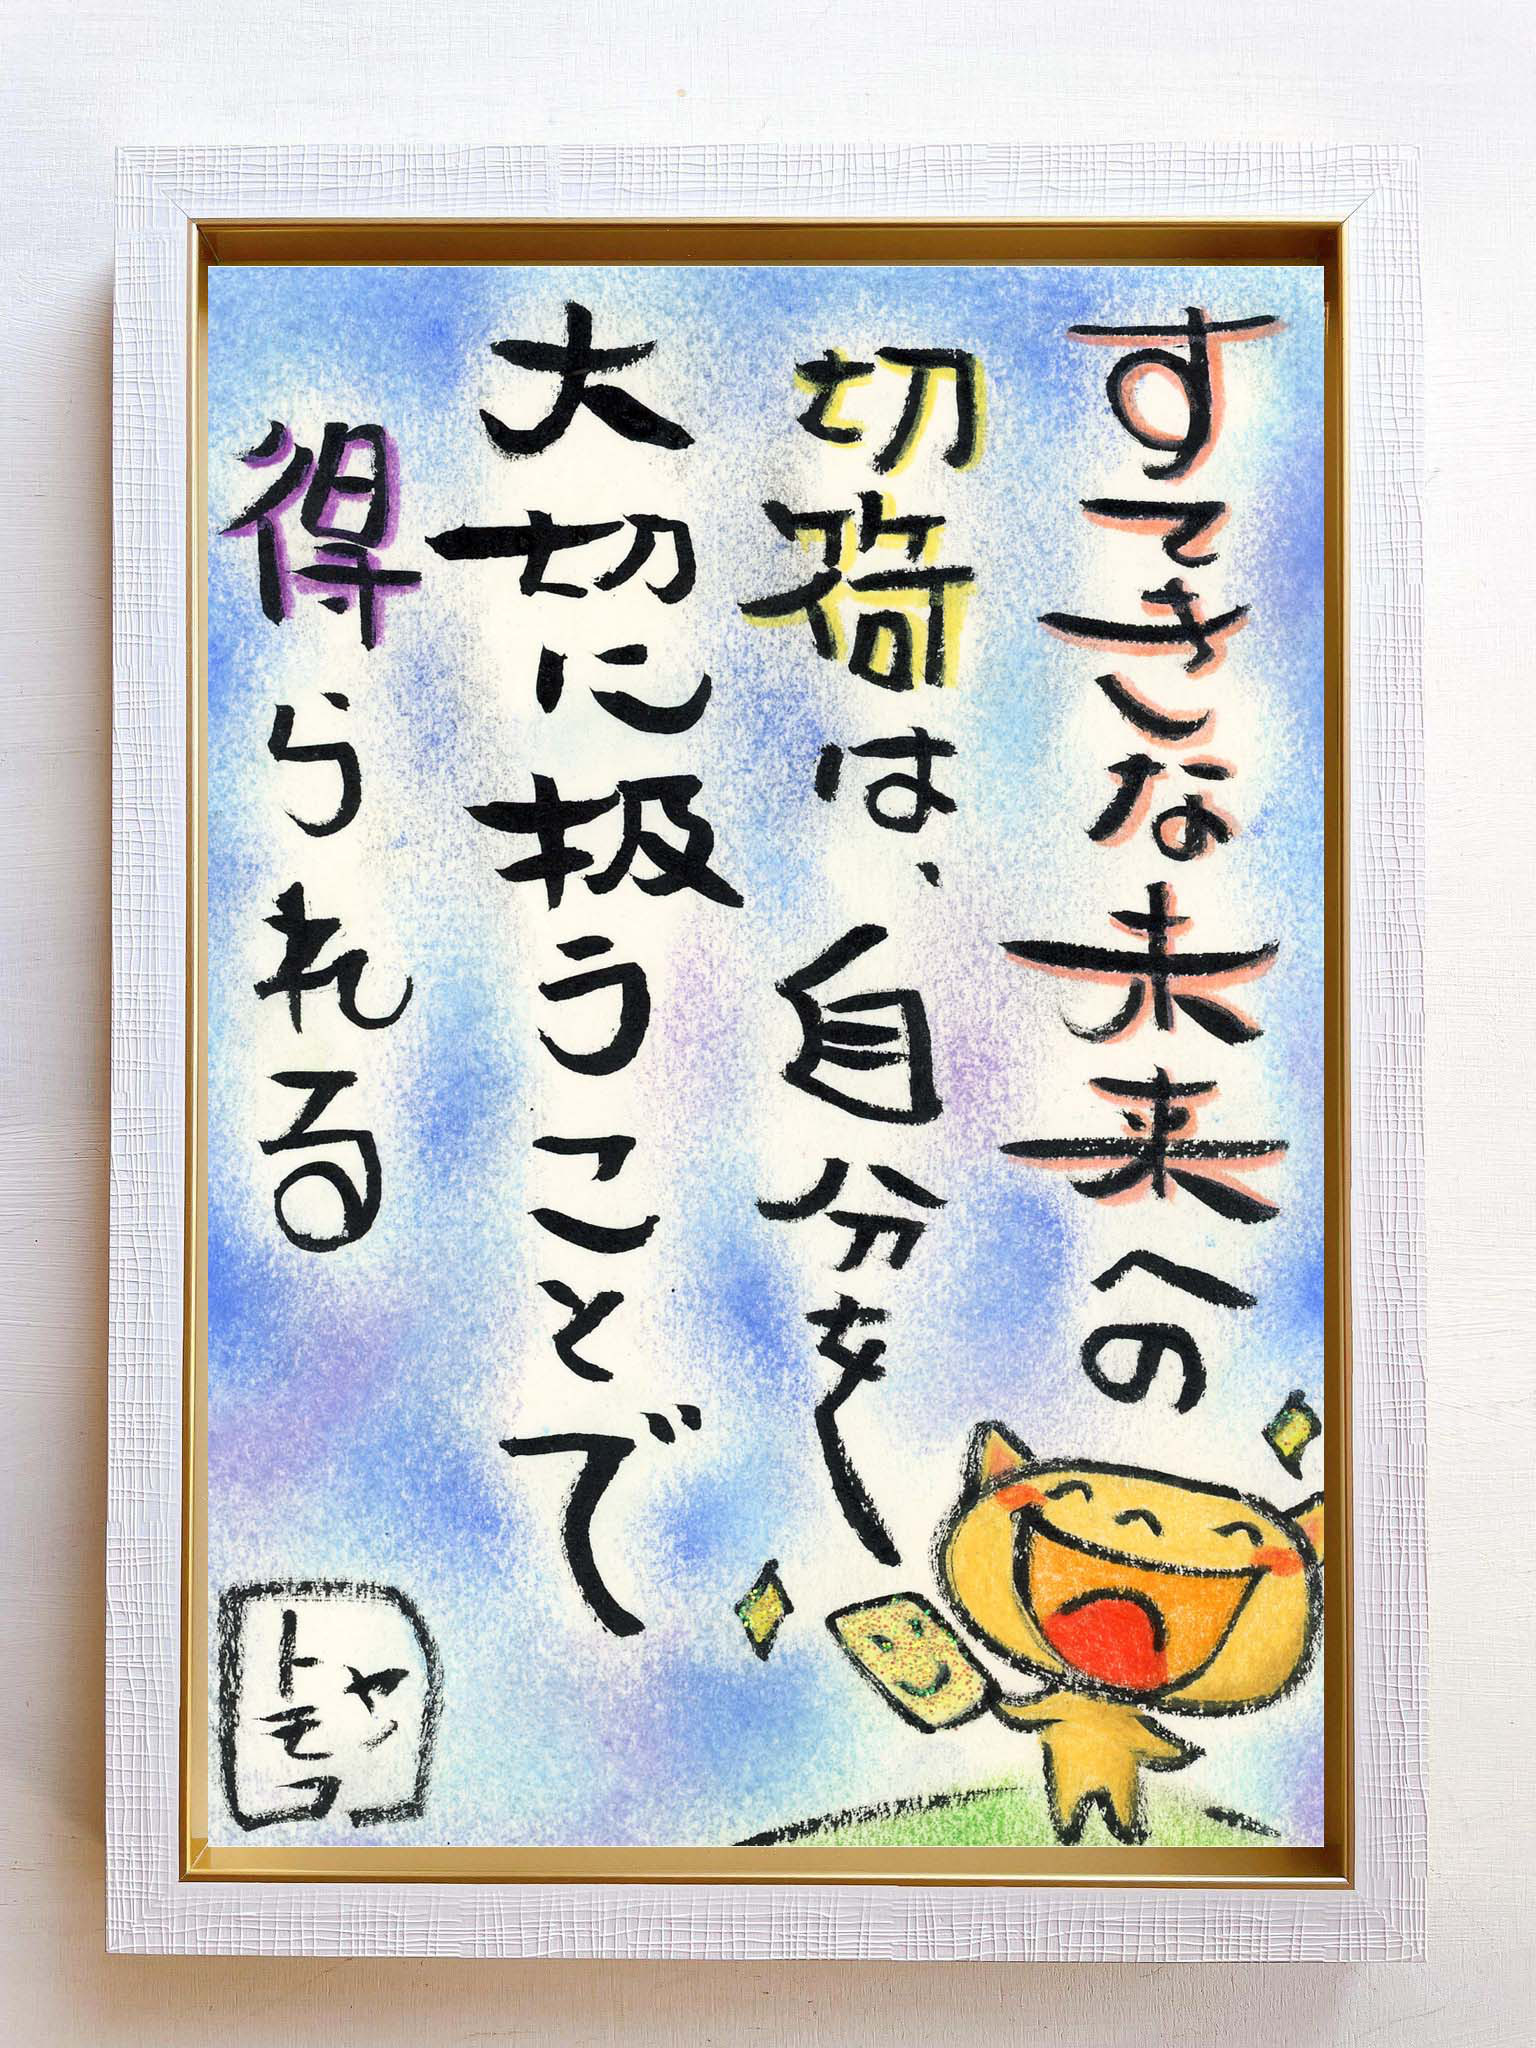 すてきな未来への
切荷は、自分を
大切に扱うことで
得られる
ヤン
トモコ